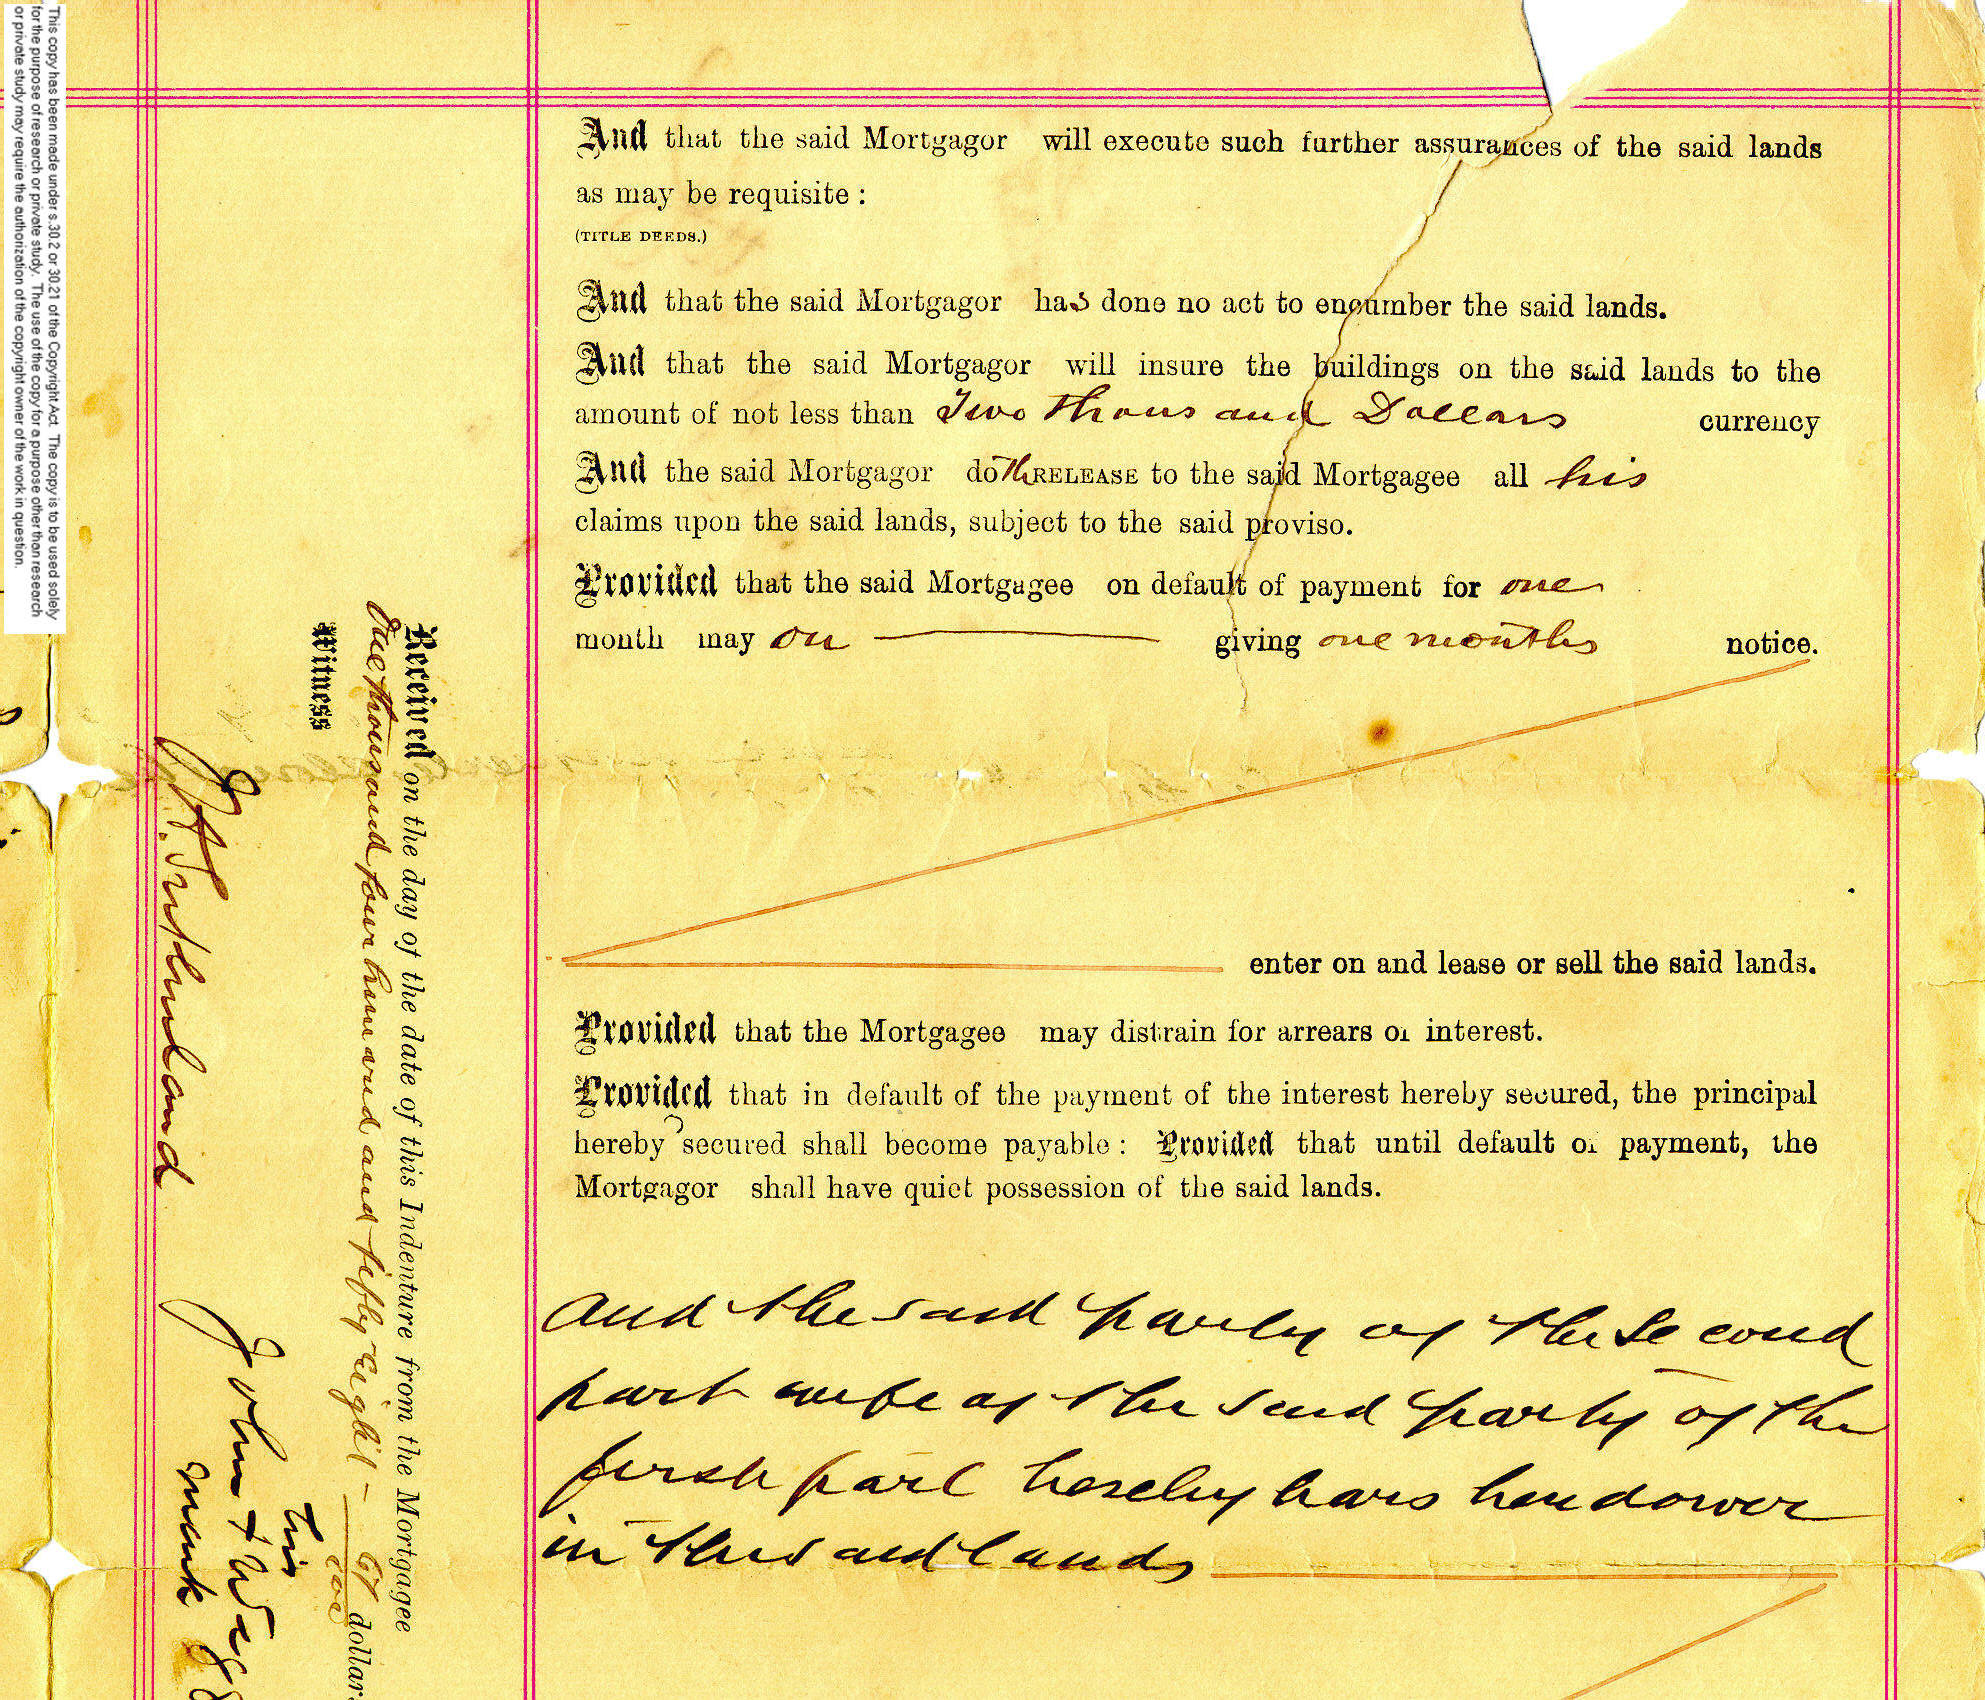 This copy has been made under s.30.2 or 30.21 of the Copyright Act. The copy is to be used solely
for the purpose of research or private study. The use of the copy for a purpose other than research
or private study may require the authorization of the copyright owner of the work in question.
And that the said Mortgagor will execute such further assurances of the said lands
as may be requisite :
(TITLE DEEDS.)
And that the said Mortgagor has done no act to encumber the said lands.
And that the said Mortgagor will insure the buildings on the said lands to the
amount of not less than Two thousand Dollars currency
And the said Mortgagor doth RELEASE to the said Mortgagee all his
claims upon the said lands, subject to the said proviso.
Provided that the said Mortgagee on default of payment for one
month may on giving one months notice.
enter on and lease or sell the said lands.
Provided that the Mortgagee may distrain for arrears of interest.
Provided that in default of the payment of the interest hereby secured, the principal
hereby secured shall become payable : Provided that until default of payment, the
Mortgagor shall have quiet possession of the said lands.
and the said party of the Second
part wife of the said party of the
first part hereby bars her dower
in the said lands
Received on the day of the date of this Indenture from the Mortgagee
One thousand four hundred and fifty-eight - 67/100 dollars
Witness
J. H. Sutherland
his
John + 
mark